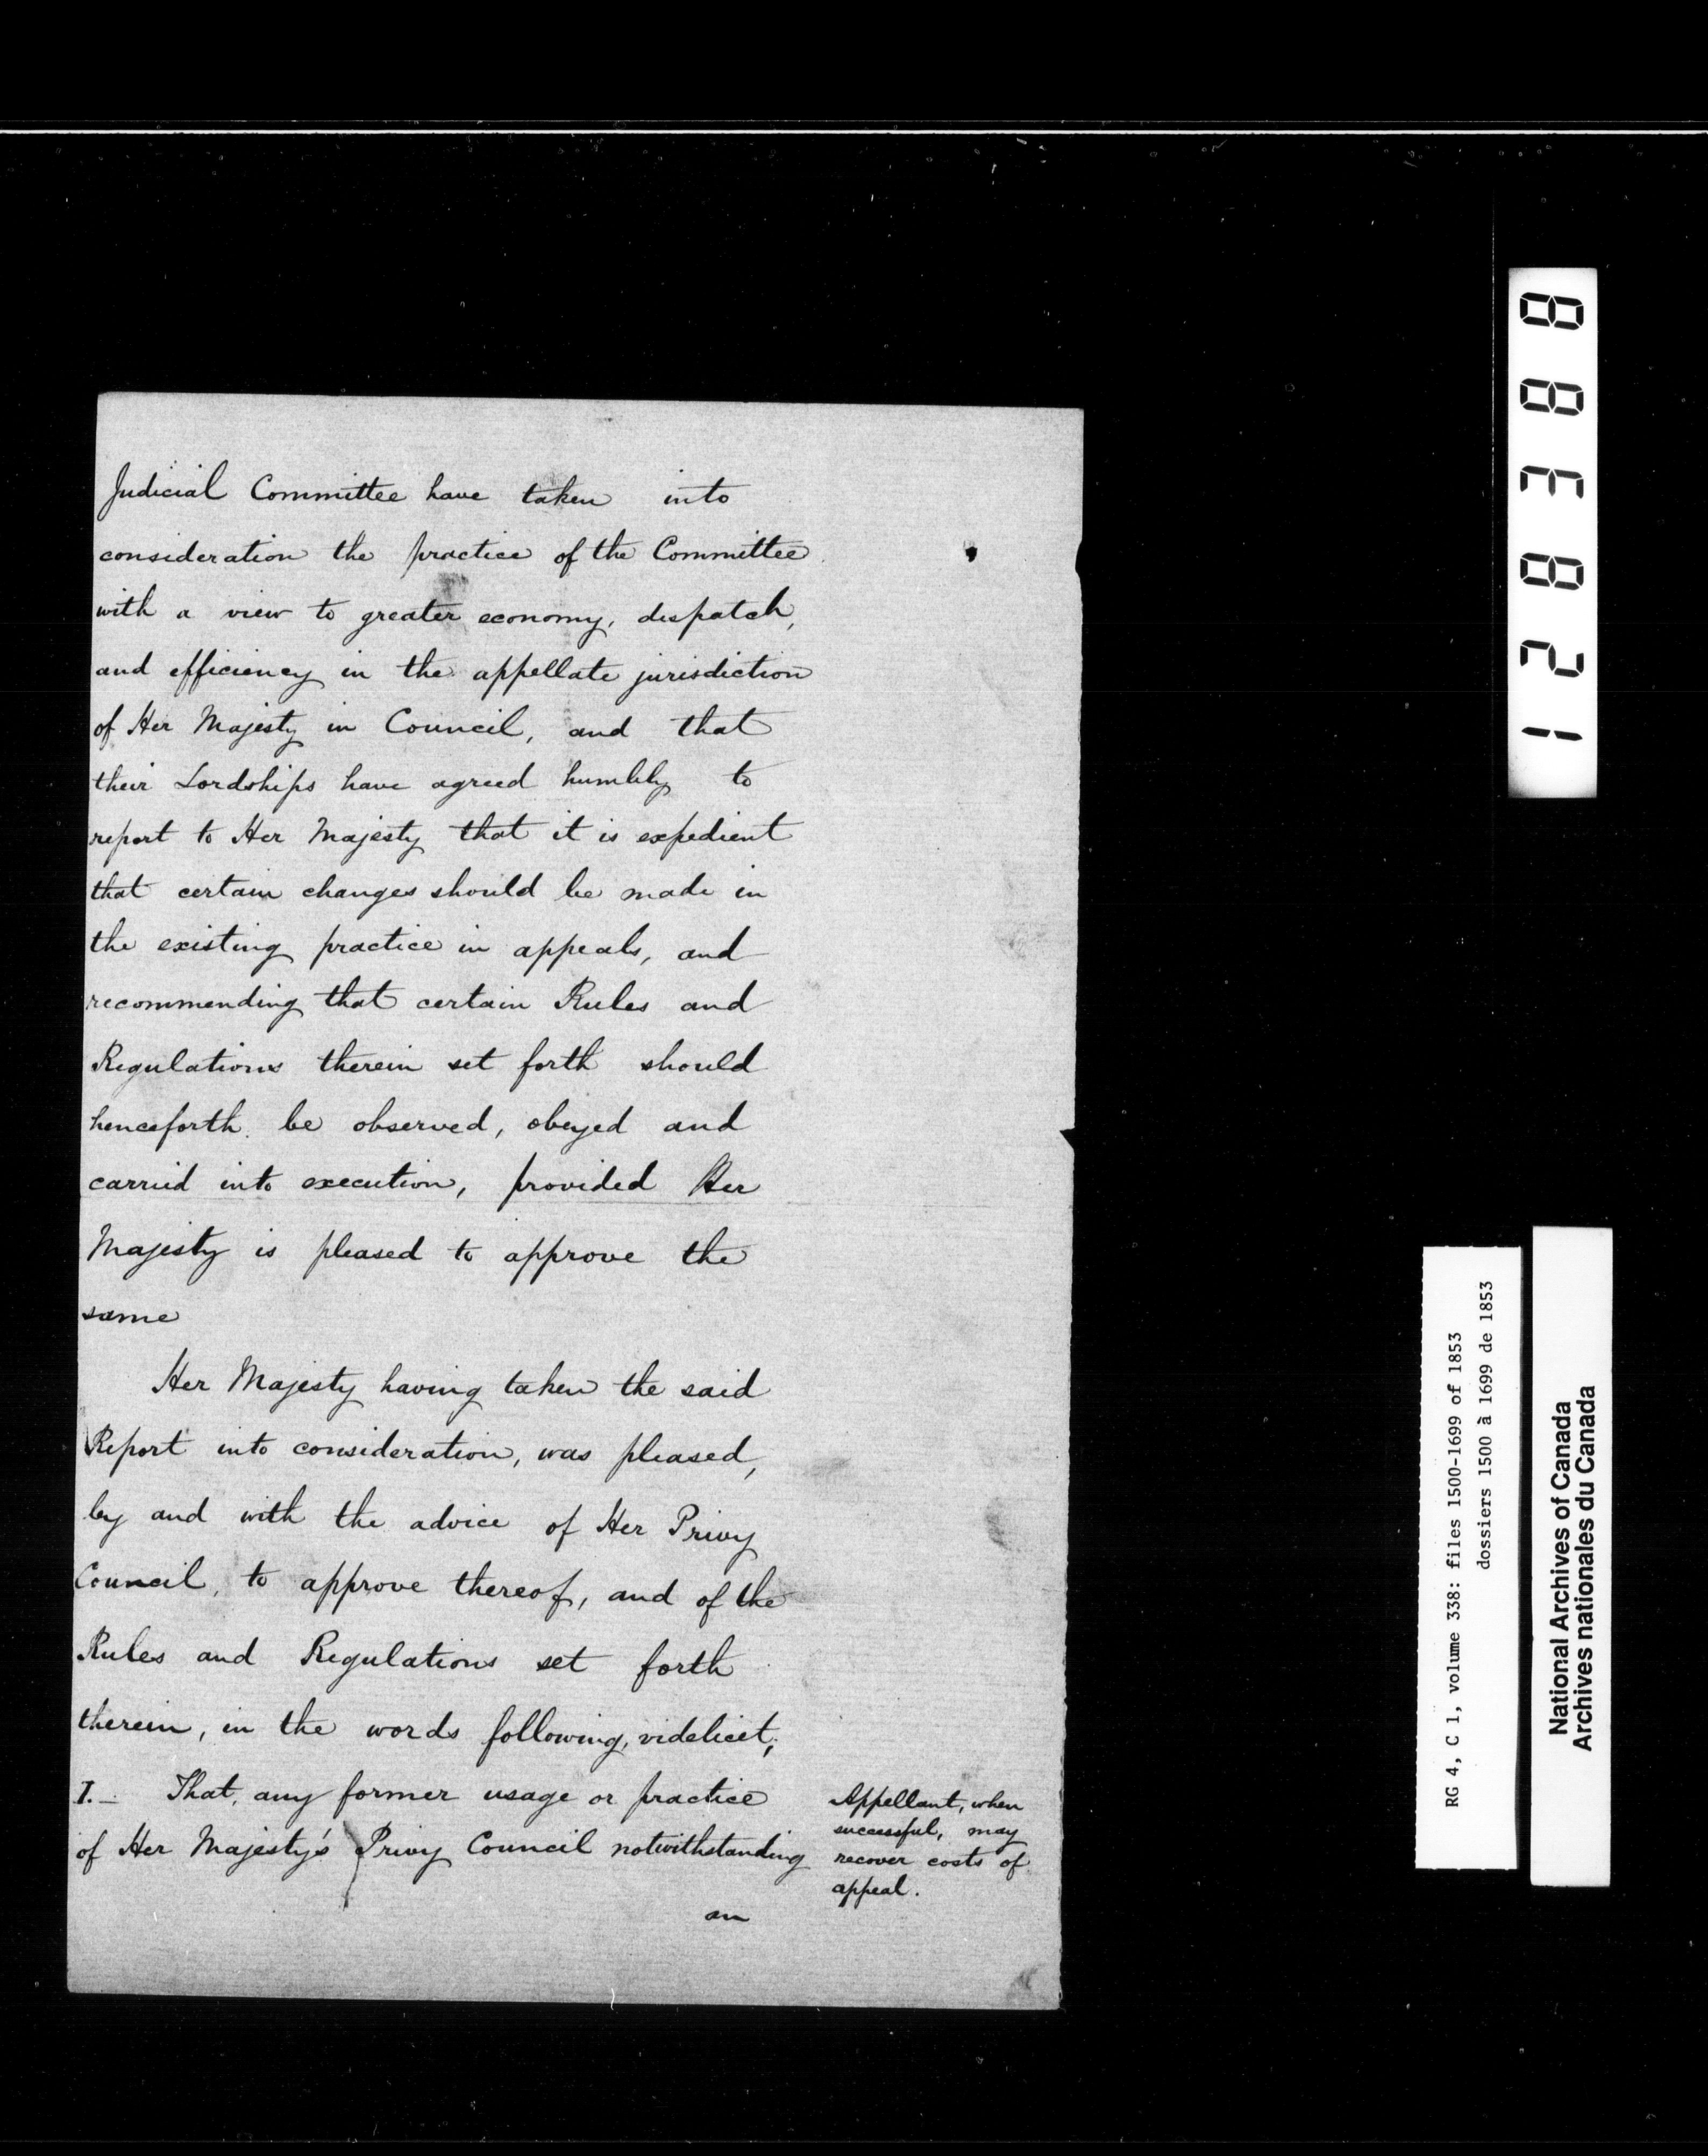 Judicial Committee have taken into
consideration the practice of the Committee
with a view to greater economy, dispatch,
and efficiency in the appellate jurisdiction
of Her Majesty in Council, and that
their Lordships have agreed humbly to
report to Her Majesty that it is expedient
that certain changes should be made in
the existing practice in appeals, and
recommending that certain Rules and
Regulations therein set forth should
henceforth be observed, obeyed and
carried into execution, provided Her
Majesty is pleased to approve the
same
Her Majesty having taken the said
Report into consideration, was pleased,
by and with the advice of Her Privy
Council, to approve thereof, and of the
Rules and Regulations set forth
therein, in the words following, videlicet;
I.— That, any former usage or practice
of Her Majesty's Privy Council notwithstanding
an
Appellant, when
successful, may
recover costs of
appeal.
128388
RG 4, C 1, volume 338: files 1500-1699 of 1853
dossiers 1500 à 1699 de 1853
National Archives of Canada
Archives nationales du Canada